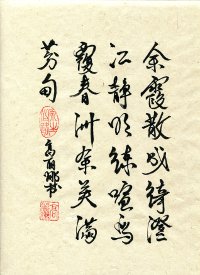 余霞散成绮澄
江静如练喧鸟
覆春洲杂英满
芳甸